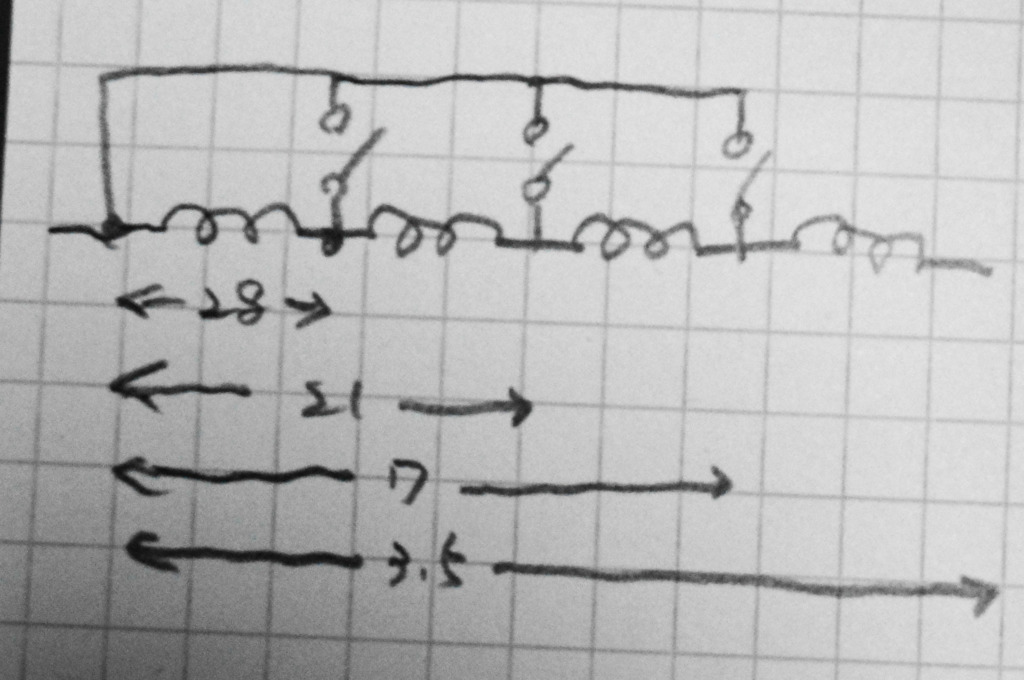 28
21
17
3.5